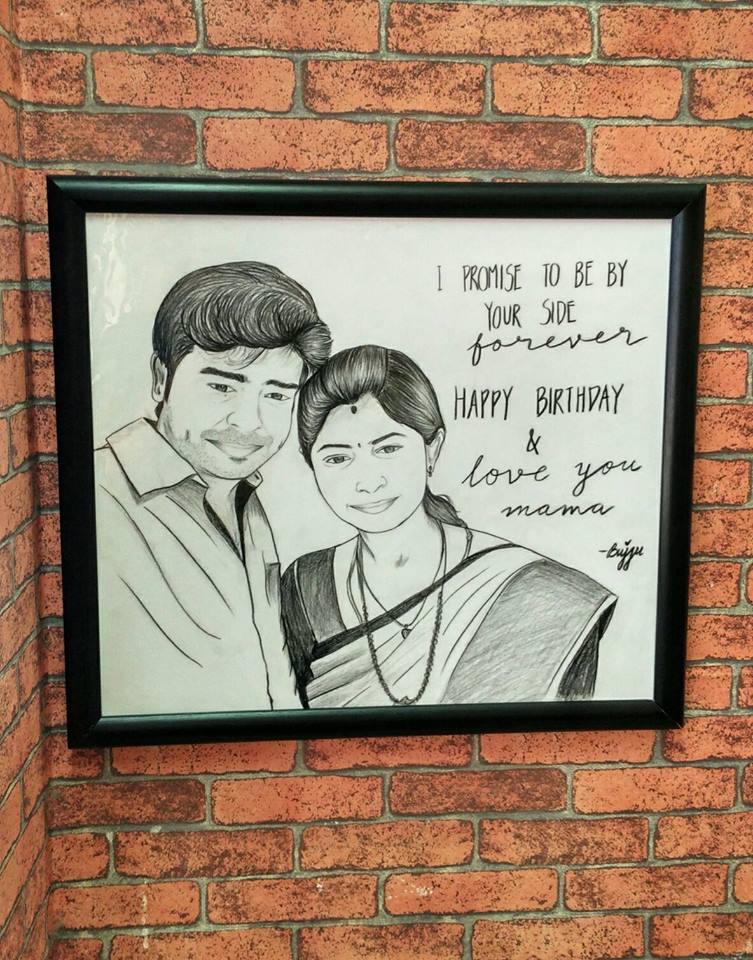 I PROMISE TO BE BY
YOUR SIDE
forever
HAPPY BIRTHDAY
&
love you
mama
-Bujju